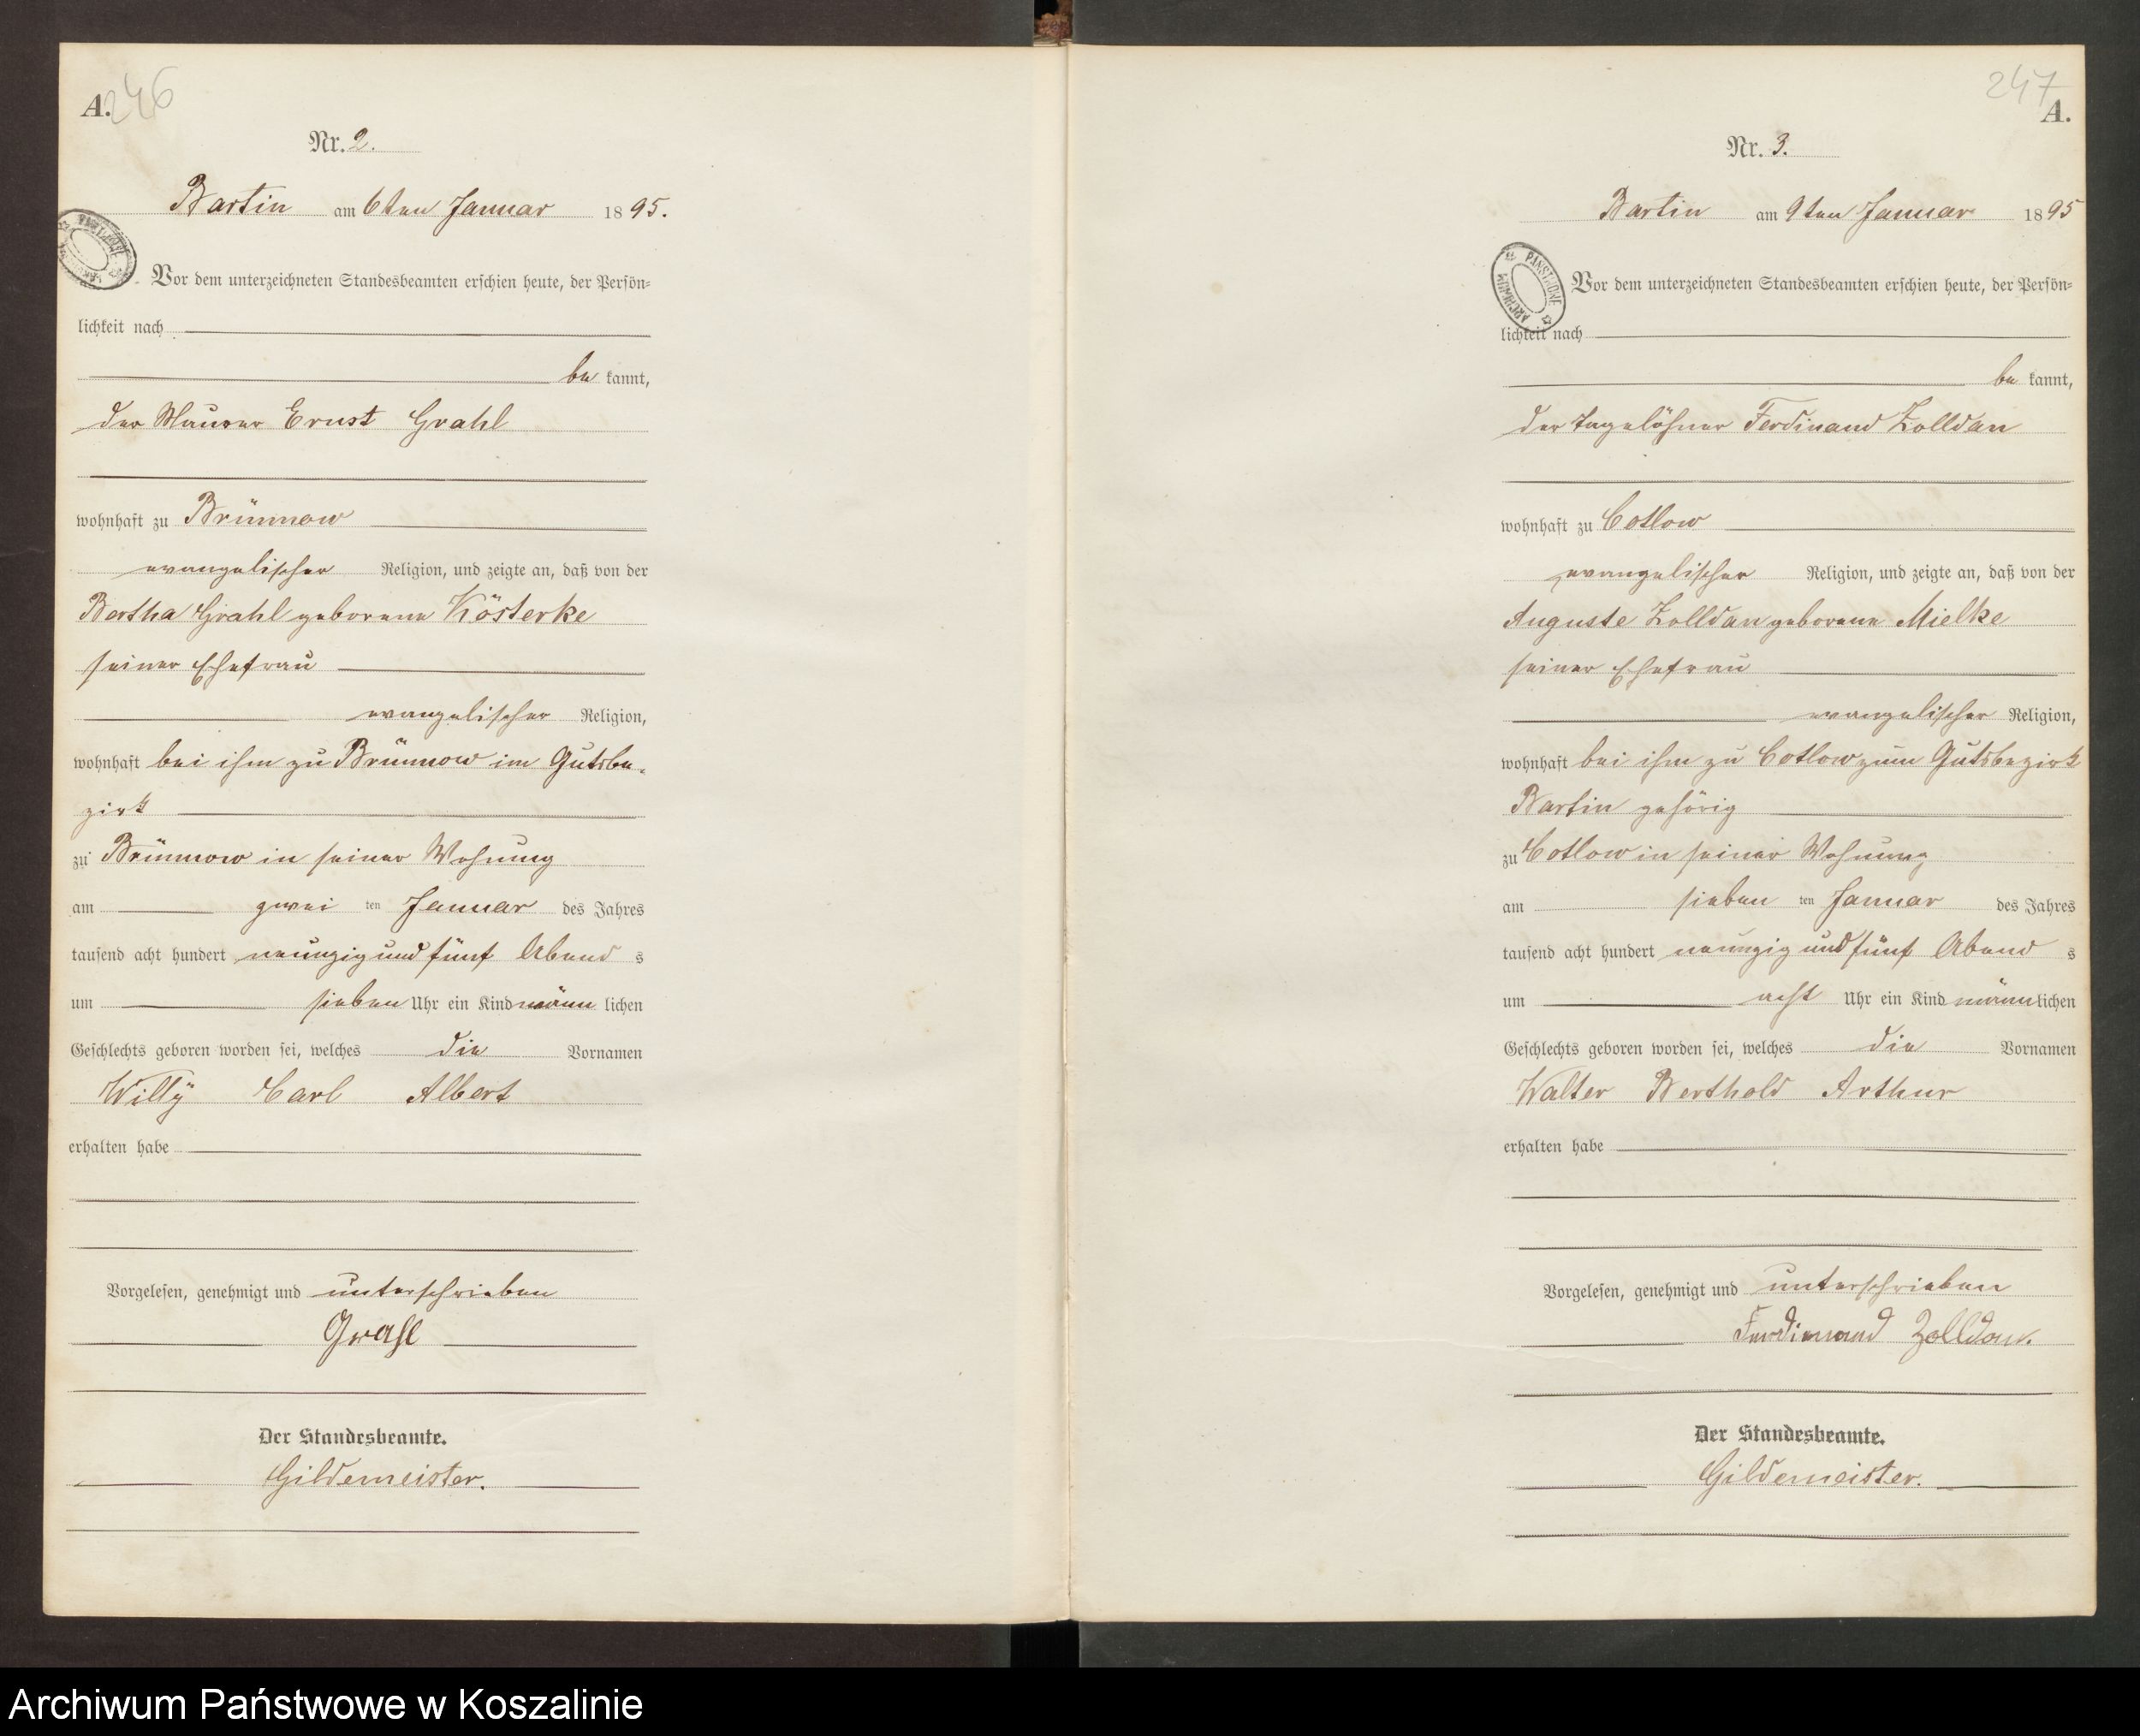 A.
246
Nr. 2.
Bartin am 6ten Januar 1895.
Vor dem unterzeichneten Standesbeamten erschien heute, der Persön=
lichkeit nach
be kannt,
der Maurer Ernst Grahl
wohnhaft zu Brünnow
evangelischer Religion, und zeigte an, daß von der
Bertha Grahl geborene Kösterke
seiner Ehefrau
evangelischer Religion,
wohnhaft bei ihm zu Brünnow im Gutsbe-
zirk
zu Brünnow in seiner Wohnung
am zwei ten Januar des Jahres
tausend acht hundert neunzig und fünf Abend s
um sieben Uhr ein Kind männ lichen
Geschlechts geboren worden sei, welches die Vornamen
Willy Carl Albert
erhalten habe
Vorgelesen, genehmigt und unterschrieben
Grahl
Der Standesbeamte.
Gildemeister.
247
A.
Nr. 3.
Bartin am 9ten Januar 1895
PANSTWOWE
ARCHIWUM
Vor dem unterzeichneten Standesbeamten erschien heute, der Persön=
lichkeit nach
be kannt,
der Tagelöhner Ferdinand Zolldan
wohnhaft zu Cotlow
evangelischer Religion, und zeigte an, daß von der
Auguste Zolldan geborene Mielke
seiner Ehefrau
evangelischer Religion,
wohnhaft bei ihm zu Cotlow zum Gutsbezirk
Bartin gehörig
zu Cotlow in seiner Wohnung
am sieben ten Januar des Jahres
tausend acht hundert neunzig und fünf Abend s
um acht Uhr ein Kind männ lichen
Geschlechts geboren worden sei, welches die Vornamen
Walter Berthold Arthur
erhalten habe
Vorgelesen, genehmigt und unterschrieben
Ferdinand Zolldan.
Der Standesbeamte.
Gildemeister.
Archiwum Państwowe w Koszalinie